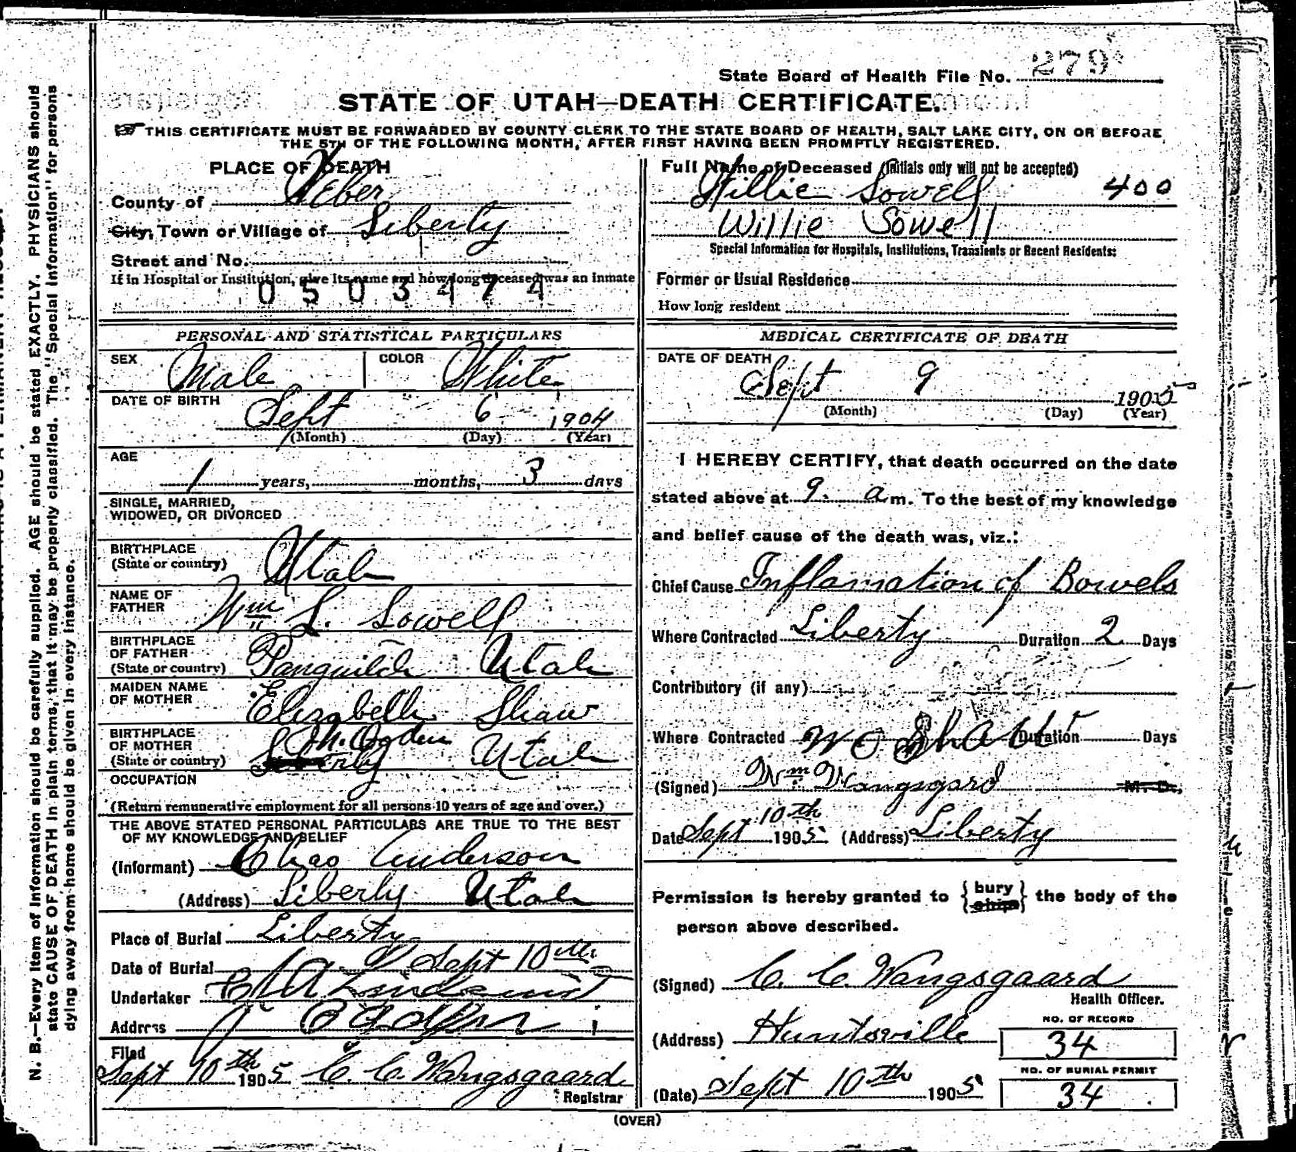 State Board of Health File No. 279
STATE OF UTAH—DEATH CERTIFICATE.
THIS CERTIFICATE MUST BE FORWARDED BY COUNTY CLERK TO THE STATE BOARD OF HEALTH, SALT LAKE CITY, ON OR BEFORE
THE 5TH OF THE FOLLOWING MONTH, AFTER FIRST HAVING BEEN PROMPTLY REGISTERED.
PLACE OF DEATH
County of Weber
City, Town or Village of Liberty
Street and No.
If in Hospital or Institution, give its name and how long deceased was an inmate
0503474
PERSONAL AND STATISTICAL PARTICULARS
SEX Male COLOR White
DATE OF BIRTH
Sept 6 1904
(Month) (Day) (Year)
AGE
1 years, months, 3 days
SINGLE, MARRIED,
WIDOWED, OR DIVORCED
BIRTHPLACE
(State or country) Utah
NAME OF
FATHER Wm L. Sowell
BIRTHPLACE
OF FATHER
(State or country) Panguitch Utah
MAIDEN NAME
OF MOTHER Elizabeth Shaw
BIRTHPLACE
OF MOTHER N. Ogden
(State or country) Liberty Utah
OCCUPATION
(Return remunerative employment for all persons 10 years of age and over.)
THE ABOVE STATED PERSONAL PARTICULARS ARE TRUE TO THE BEST
OF MY KNOWLEDGE AND BELIEF
(Informant) Chas Anderson
(Address) Liberty Utah
Place of Burial Liberty
Date of Burial Sept 10th
Undertaker
Address
Filed
Sept 10th 1905 C. C. Wangsgaard
Registrar
Full Name of Deceased (Initials only will not be accepted)
Willie Sowell 400
Willie Sowell
Special Information for Hospitals, Institutions, Transients or Recent Residents:
Former or Usual Residence
How long resident
MEDICAL CERTIFICATE OF DEATH
DATE OF DEATH
Sept 9 1905
(Month) (Day) (Year)
I HEREBY CERTIFY, that death occurred on the date
stated above at 9. a m. To the best of my knowledge
and belief cause of the death was, viz.:
Chief Cause Inflamation of Bowels
Where Contracted Liberty Duration 2 Days
Contributory (if any)
Where Contracted Duration Days
(Signed) Wm Wangsgard M. D.,
Date Sept 10th 1905 (Address) Liberty
Permission is hereby granted to {bury
ship} the body of the
person above described.
(Signed) C. C. Wangsgaard
Health Officer.
(Address) Huntsville
NO. OF RECORD
34
(Date) Sept 10th 1905
NO. OF BURIAL PERMIT
34
(OVER)
N. B.—Every item of information should be carefully supplied. AGE should be stated EXACTLY. PHYSICIANS should
state CAUSE OF DEATH in plain terms, that it may be properly classified. The "Special Information" for persons
dying away from home should be given in every instance.